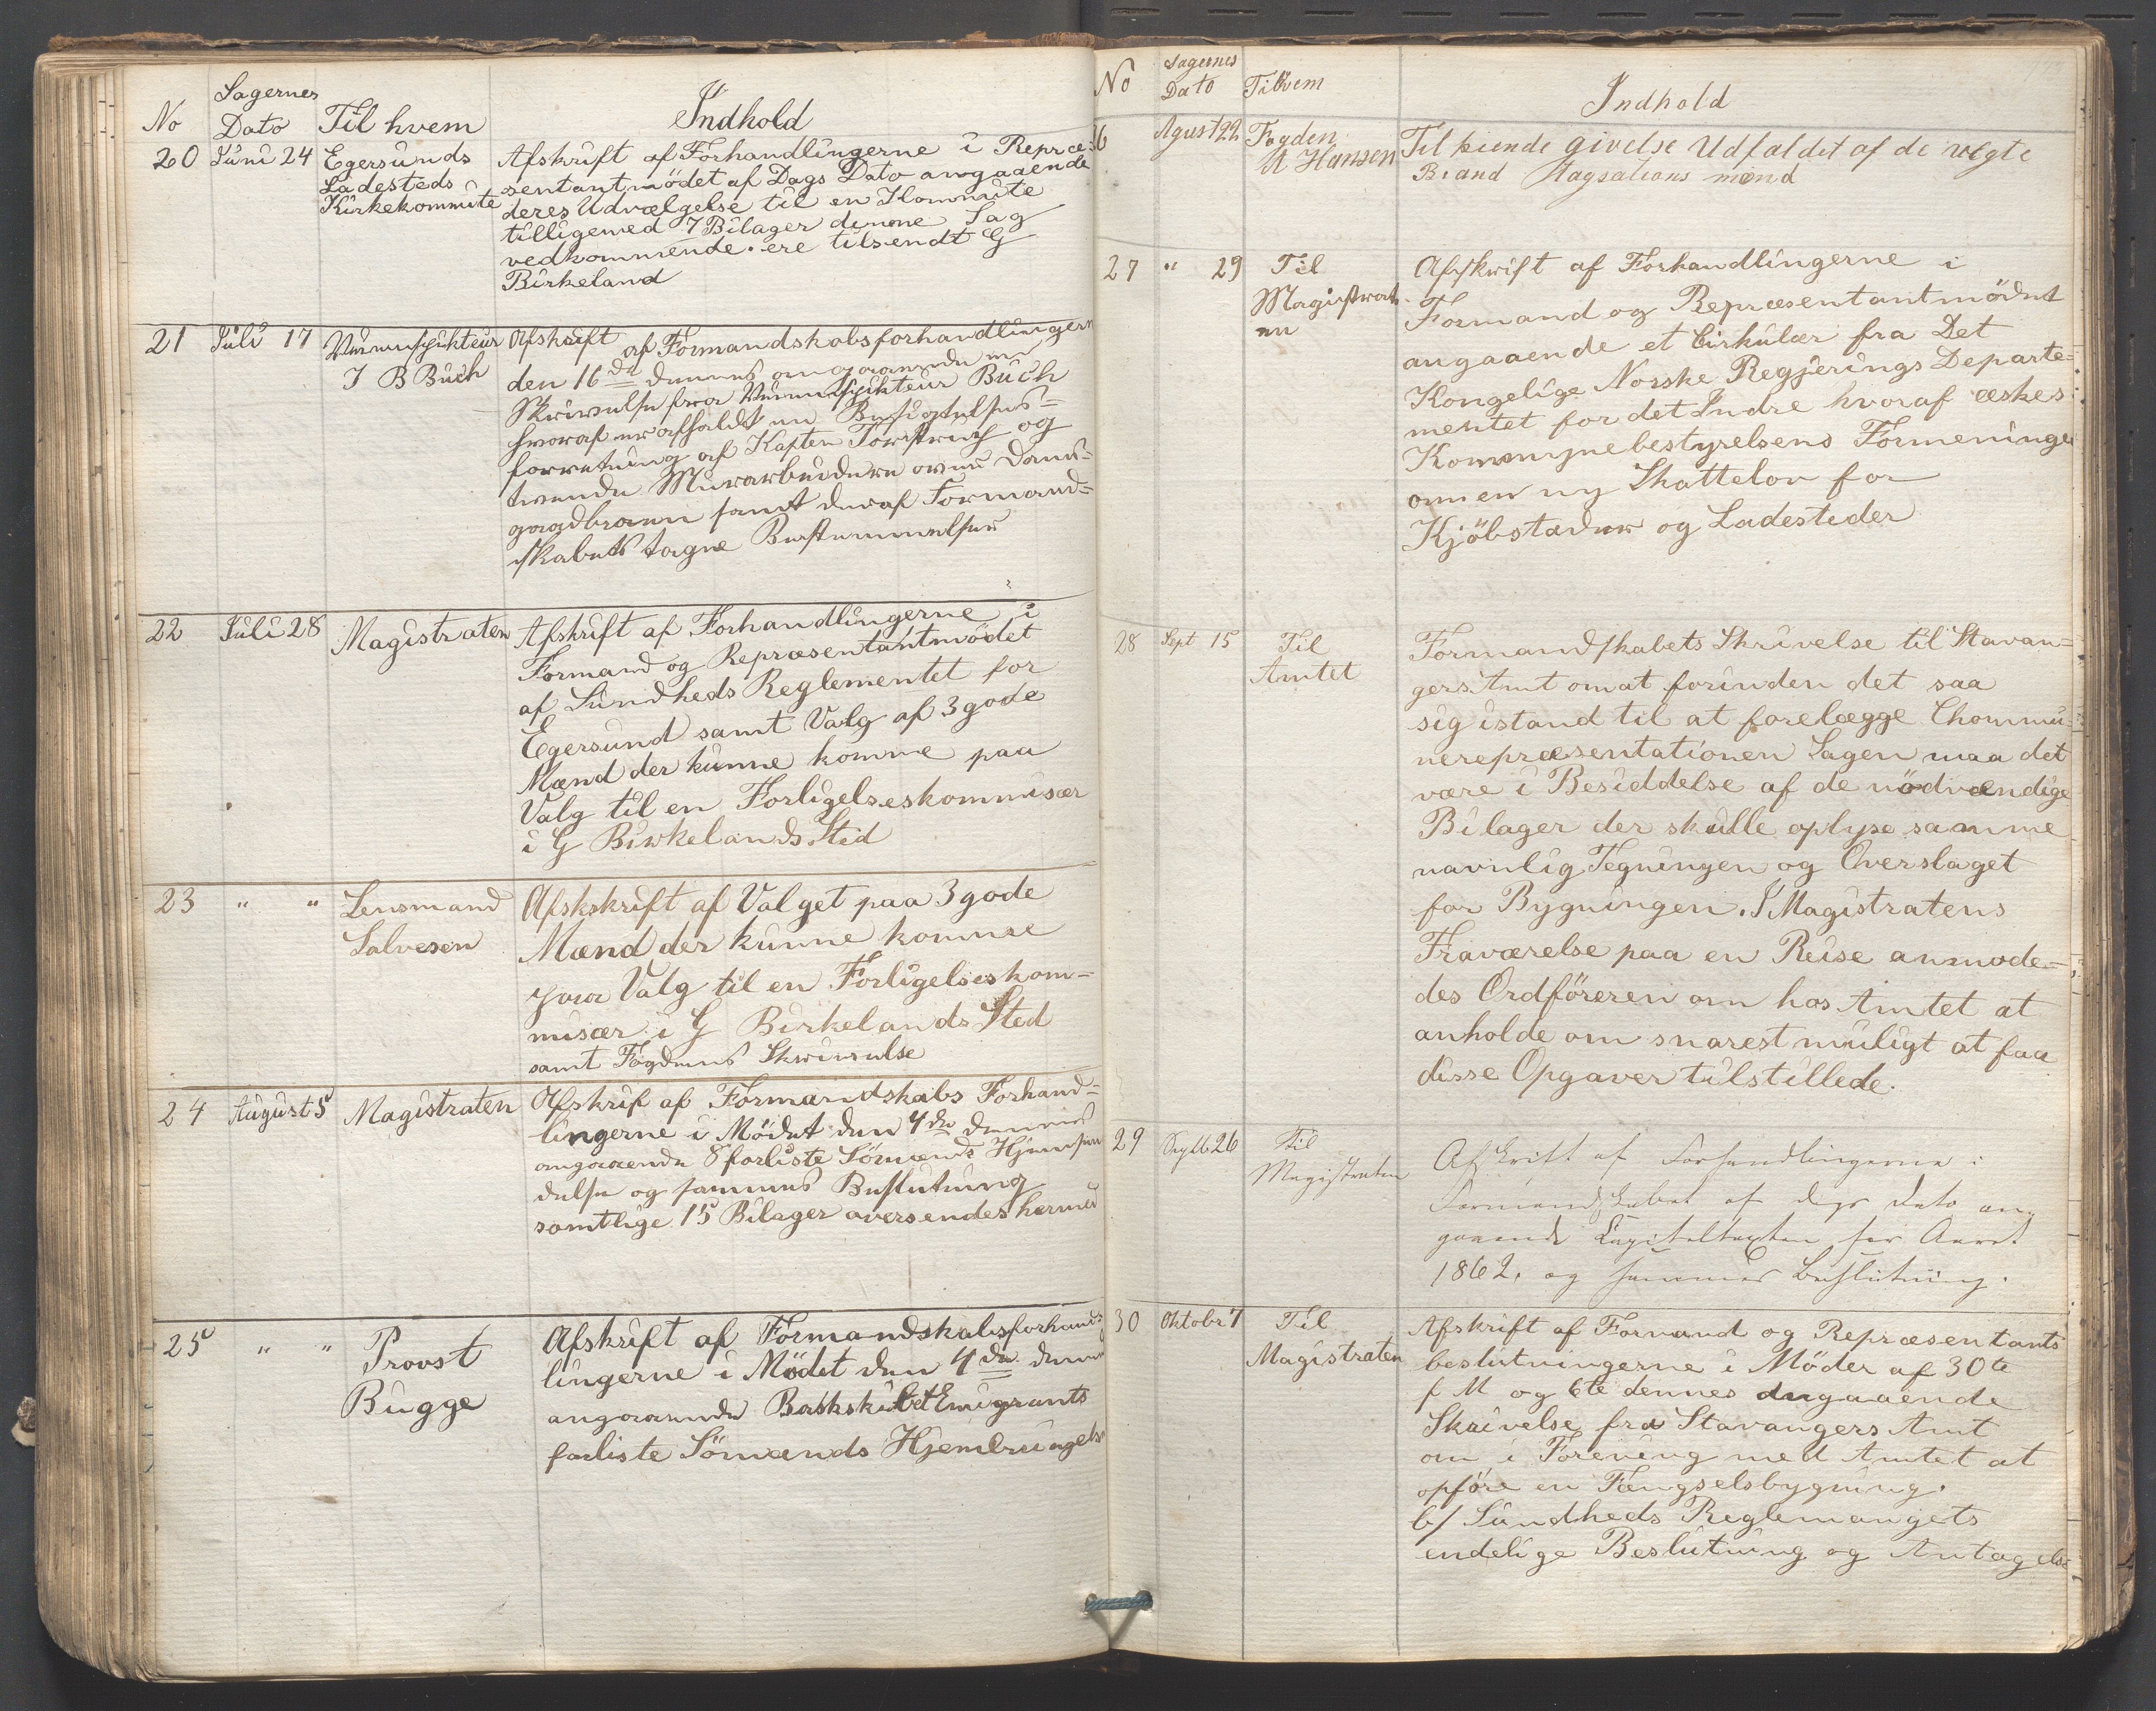 No Sagernes Dato Til hvem Indhold
20 Juni 24 Egersunds Ladesteds Kirkekommite
Afskrift af Forhandlingerne i Repræ-
sentantmödet af Dags Dato angaaende
deres Udvælgelse til en Kommite
tilligemed 7 Bilager denne Sag
vedkommende. ere tilsendt G
Birkeland
21 Juli 17 J B Buch
Afskrift af Formandskabsforhandlingern
den 16de dennes angaaende en
Skrivelse fra Buch
hvoraf er afholdt en Besigtelses=
forretning af Kapten og
tvende Murarbeidere over Dam-
samt deraf Formand=
skabets tagne Bestemmelser
22 Juli 28 Magistraten
Afskrift af Forhandlingerne i
Formand og Repræsentantmödet
af Sundheds Reglementet for
Egersund samt Valg af 3 gode
Mænd der kunne komme paa
Valg til en Forligelseskommisær
i G Birkelands Sted
23 " " Lensmand Salvesen
Afskskrift af Valget paa 3 gode
Mænd der kunne komme
paa Valg til en Forligelseskom-
misær i G Birkelands Sted
samt Fogdens Skrivelse
24 August 5 Magistraten
Afskrif af Formandskabs Forhand=
lingerne i Mödet den 4de dennes
angaaende 8 forliste Sömænds Hjemsen
delse og sammes Beslutning
samtlige 15 Bilager oversendes hermed
25 " " Provst Bugge
Afskrift af Formandskabsforhand=
lingerne i Mödet den 4de dennes
angaaende Barkskibet Emigrants
forliste Sömænds Hjembringelse
No Sagernes Dato Til hvem Indhold
26 Agust 22 Fogden A Hansen
Til kiende givelse Udfaldet af de valgte
Brand Tagsations mænd
27 " 29 Til Magistrat en
Afskrift af Forhandlingerne i
Formand og Repræsentantmödet
angaaende et Cirkulær fra Det
Kongelige Norske Regjerings Departe=
mentet for det Indre hvoraf æskes
Kommunebestyrelsens Formeninger
om en ny Skattelov for
Kjöbstæder og Ladesteder
28 Sept 15 Til Amtet
Formandskabets Skrivelse til Stavan=
gers Amt om at forinden det saa
sig istand til at forelægge Chommu=
nerepræsentationen Sagen maa det
være i Besiddelse af de nödvændige
Bilager der skulle oplyse samme
navnlig Tegningen og Overslaget
for Bygningen. I Magistratens
Fraværelse paa en Reise anmode=
des Ordföreren om hos Amtet at
anholde om snarest muligt at faa
disse Opgaver tilstillede.
29 Septb 26 Til Magistraten
Afskrift af Forhandlingerne i
Formandskabet af dags dato an=
gaaende Kapiteltaxten for Aaret
1862. og sammes Beslutning.
30 Oktobr 7 Til Magistraten
Afskrift af Formand og Repræsentants
beslutningerne i Möder af 30te
f M og 6te dennes angaaende
Skrivelse fra Stavangers Amt
om i Forening med Amtet at
opföre en Fængselsbygning.
b/ Sundheds Reglemangets
endelige Beslutning og Antagelse